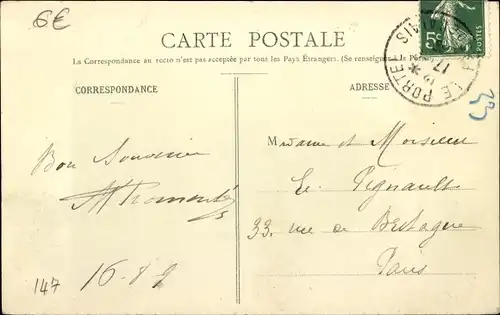 6€
CARTE POSTALE
La Correspondance au recto n'est pas acceptée par tous les Pays Étrangers. (Se renseigner à la Poste)
CORRESPONDANCE
ADRESSE
LE PORTEL
17
5c
POSTES
Bon Souvenir
Madame et Monsieur
E. Pignault
33, rue de Bretagne
Paris
16-8 9
147